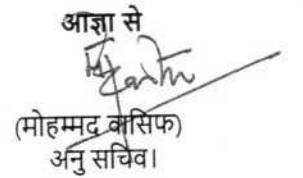 आज्ञा से
(मोहम्मद वासिफ)
अनु सचिव।